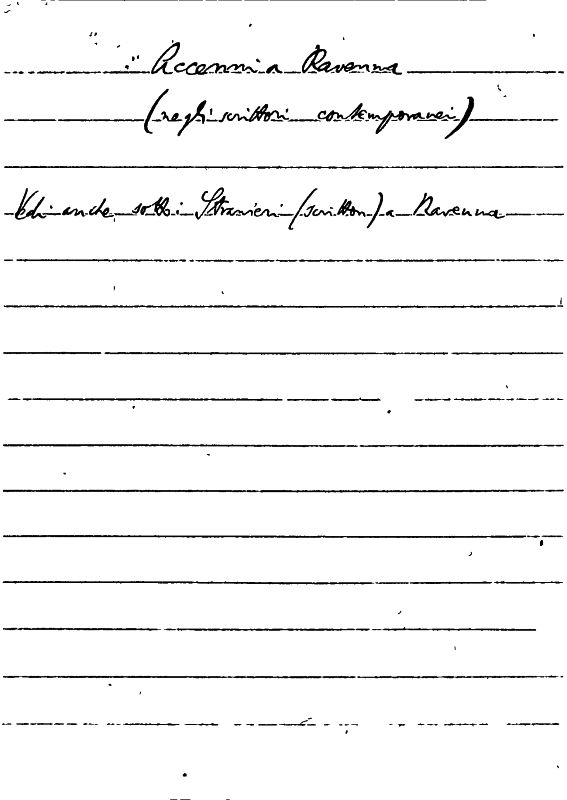 Accenni a Ravenna
(negli scrittori contemporanei)
Vedi anche sotto: Stranieri (scrittori) a Ravenna